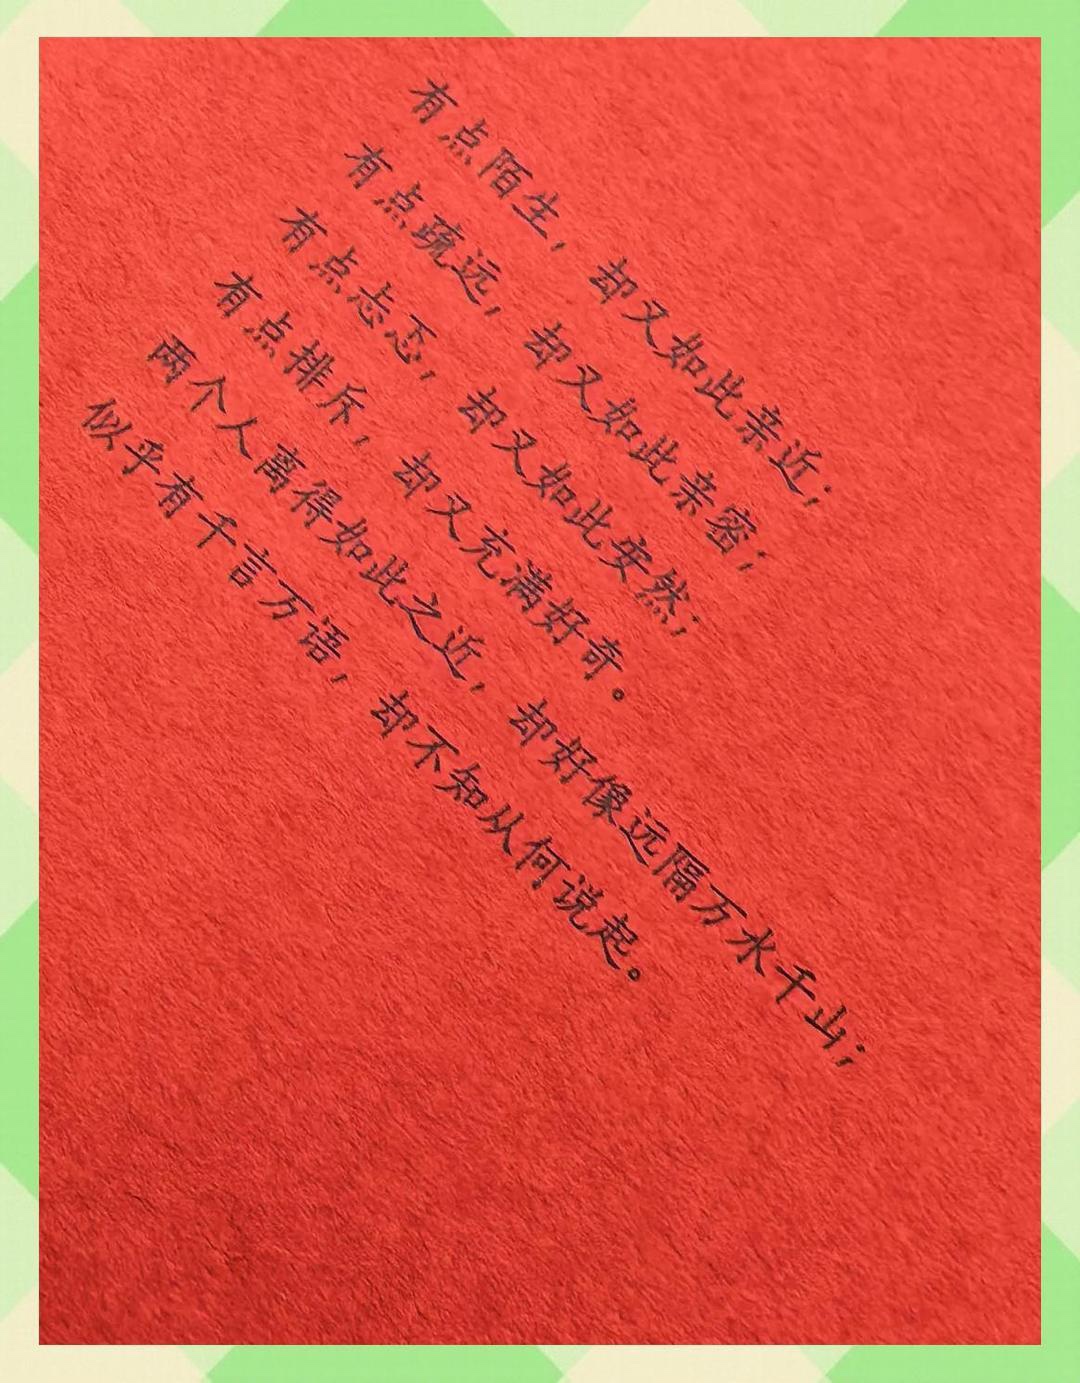 有点陌生，却又如此亲近；
有点疏远，却又如此亲密；
有点忐忑，却又如此安然；
有点排斥，却又充满好奇。
两个人离得如此之近，却好像远隔万水千山；
似乎有千言万语，却不知从何说起。